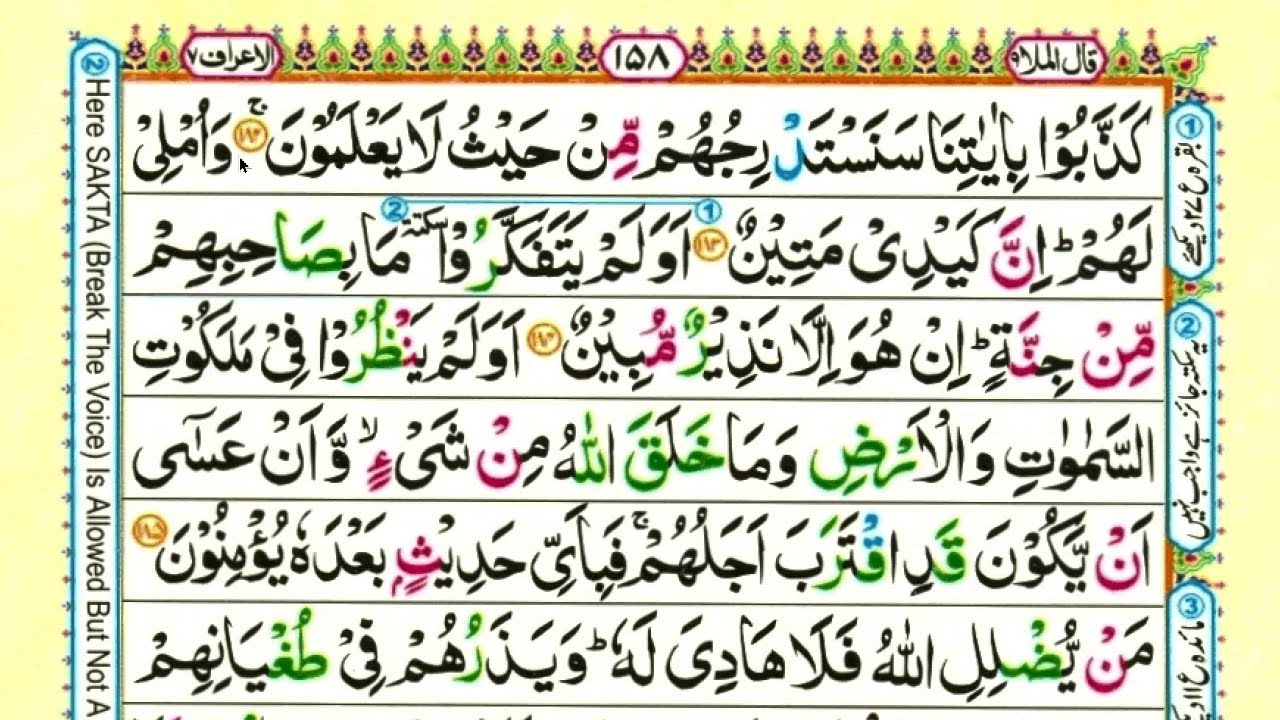 قال الملا ٩
١٥٨
الاعراف ٧
كَذَّبُوْا بِاٰيٰتِنَا سَنَسْتَدْرِجُهُمْ مِّنْ حَيْثُ لَا يَعْلَمُوْنَ ۚ ١٨٢ وَاُمْلِىْ
لَهُمْ ؕ اِنَّ كَيْدِىْ مَتِيْنٌ ١٨٣ ① اَوَلَمْ يَتَفَكَّرُوْا سكتة ② مَا بِصَاحِبِهِمْ
مِّنْ جِنَّةٍ ؕ اِنْ هُوَ اِلَّا نَذِيْرٌ مُّبِيْنٌ ١٨٤ اَوَلَمْ يَنْظُرُوْا فِىْ مَلَكُوْتِ
السَّمٰوٰتِ وَالْاَرْضِ وَمَا خَلَقَ اللّٰهُ مِنْ شَىْءٍ ۙ وَّاَنْ عَسٰٓى
اَنْ يَّكُوْنَ قَدِ اقْتَرَبَ اَجَلُهُمْ ۚ فَبِاَىِّ حَدِيْثٍۭ بَعْدَهٗ يُؤْمِنُوْنَ ١٨٥
مَنْ يُّضْلِلِ اللّٰهُ فَلَا هَادِىَ لَهٗ ؕ وَيَذَرُهُمْ فِىْ طُغْيَانِهِمْ
① بقرہ ع ٢٧ دیکھئے
② یہ سکتہ جائز ہے واجب نہیں
③ مائدہ ع ١١
② Here SAKTA (Break The Voice) Is Allowed But Not A